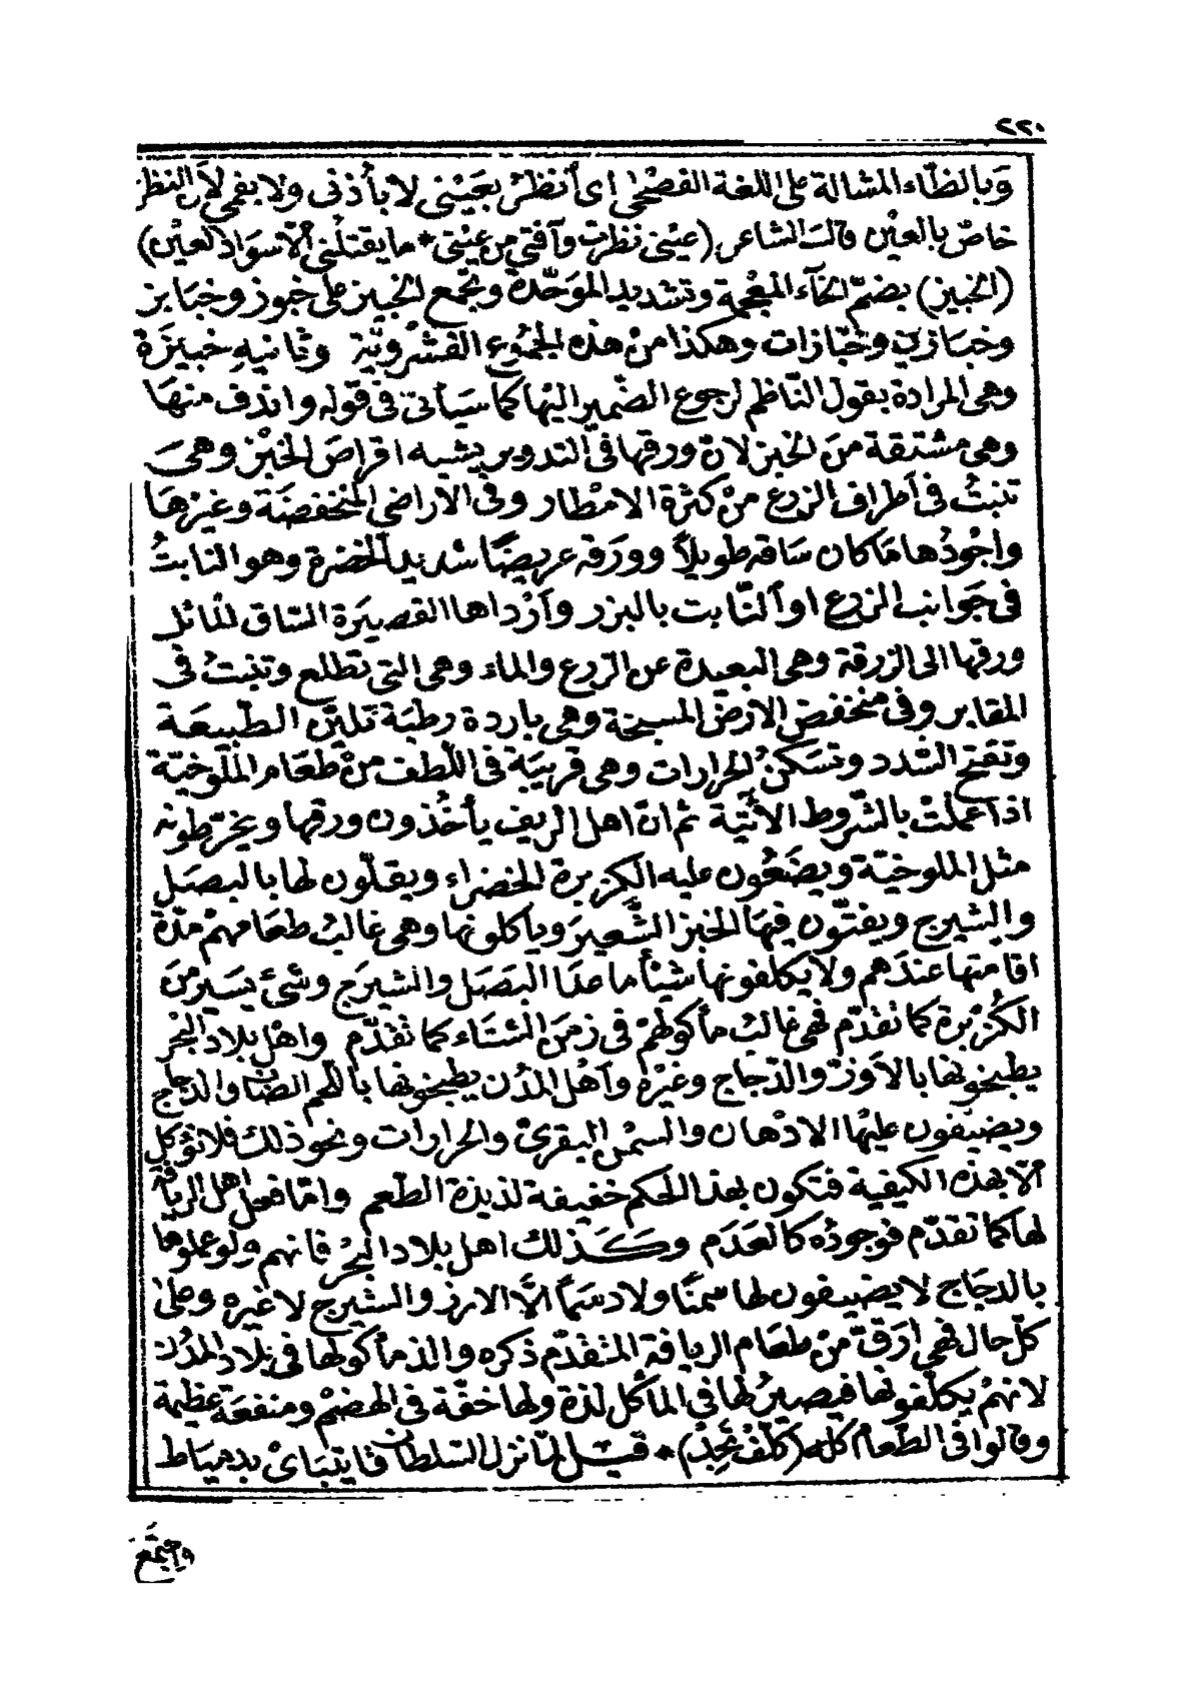 ٢٢٠
وَبالظّاء المشالة على اللغة الفصْحٰى اى أنظرُ بعَيْنى لا بأذنى ولا بفمى لاَنّ النظر
خاصّ بالعيْن قالـَ الشاعر (عينى نظرت وآفتى من عينى * ما يقتلنى ألا سوَاد العيْن)
(الخبيز) بضمّ الخآء المعجمة وتشديد الموَحّدة ويجمع الخبيز على خبوز وخبَايز
وخبَازى وخبّازات وهكذا من هذه الجموع الفشْرويّة وتانيه خبيزَة
وهى المرادة بقول النّاظم لرجوع الضّمير اليْها كما سَيأتى فى قوله واندف منهَا
وهى مشتقة منَ الخبز لانّ ورقها فى التدوير يشبه اقراصَ الخبْز وهىَ
تنبتُ فى أطراف الزرع منْ كثرة الامْطار وفى الآراضى المنخفضَة وغيْرهَا
واجْودُها مَا كان سَاقه طويلاً وورَقه عريضًا شديد الخضرة وهو النابتُ
فى جَوانب الزرع او النّابت بالبزر وآرْداها القصيرَة السّاق المائل
ورقها الى الزرقة وهى البعيدة عن الزرع والماء وهى التى تطلع وتنبتُ فى
المقابر وفى منخفض الارض المسبخة وهى باردة رطبَة تليّن الطّبيعَة
وتفتح السّدد وتسَكنُ الحرارات وهى قريبَة فى اللّطف منْ طعَام الملوخيّة
اذا عملتْ بالشّروط الآتيَة ثم انّ اهل الريف يأخُذون ورقها ويخرّطونه
مثل الملوخيّة ويضَعُون عليه الكزبرة الخضراء ويقلّون لها بالبصَل
والشيرج ويفتّون فيهَا الخبز الشّعيرَ ويأكلونها وهى غالبُ طعَامهمْ مدّة
اقامتها عندَهم ولا يكلفونها شيْأ ما عدَا البَصَل والشيرَج وشىْ يَسير منَ
الكُزْبرة كما تقدّم فهى غالبُ مأكولهمْ فى زمنَ الشتَاء كما تقدّم واهْل بلاد البَحْر
يطبخونها بالآوزّ والدّجاج وغيْره وآهْل المدُن يطبخونها باللّحم الضّان والدجاج
ويضيفون عليْها الادْهان والسمْن البقرىْ والحرارات ونحو ذلك فلا تؤكل
ألاّ بهَذه الكيفية فتكون بهذا الحكم خفيفة لذيذة الطّعم وامّا فعل اهل الريافة
لها كما تقدّم فوجودُه كالعَدَم وكَـذلك اهل بلاد البَحْر فانهم ولو عملوها
بالدجَاج لا يضيفون لها سمنًا ولا دسَمًا الّا الارز والشيرج لا غيْره وعلىٰ
كلّ حال فهى ارَقّ منْ طعَام الريافة المتقدّم ذكره والذ مأكولها فى بلاد المدُن
لانهمْ يكلّفونها فيصيرُ لها فى المأكل لذة ولها خفّة فى الهضمْ ومنفعَة عظيمة
وقالوا فى الطّعام كله (كلّفْ تجدْ) * قيـل لمّا نزل السّلطان قايتبَاىْ بدمياط
واجتمَعَ